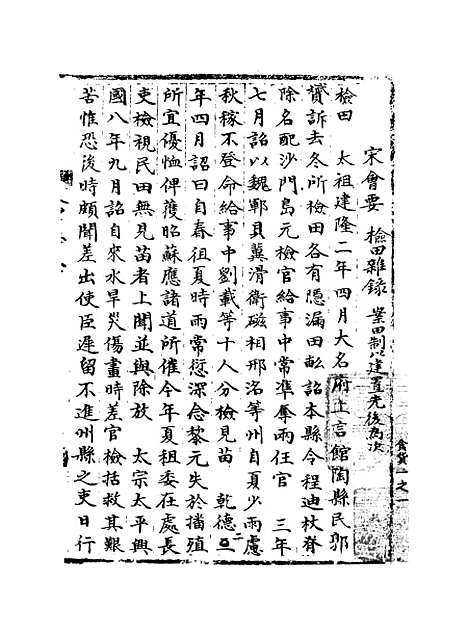 宋會要　檢田雜錄　業田制以建置先後為次
檢田　太祖建隆二年四月大名府上言館陶縣民郭
贇訴去冬所檢田各有隱漏田畝詔本縣令程迪杖脊
除名配沙門島元檢官給事中常準奪兩任官　三年
七月詔以魏鄆貝冀滑衛磁相邢洺等州自夏少雨慮
秋稼不登命給事中劉載等十人分檢見苗　乾德二
年四月詔曰自春徂夏時雨常愆深念黎元失於播殖
所宜優恤俾獲昭蘇應諸道所催今年夏租委在處長
吏檢視民田無見苗者上聞並與除放　太宗太平興
國八年九月詔自來水旱災傷畫時差官檢括救其艱
苦惟恐後時頗聞差出使臣遲留不進州縣之吏日行
食貨一之一